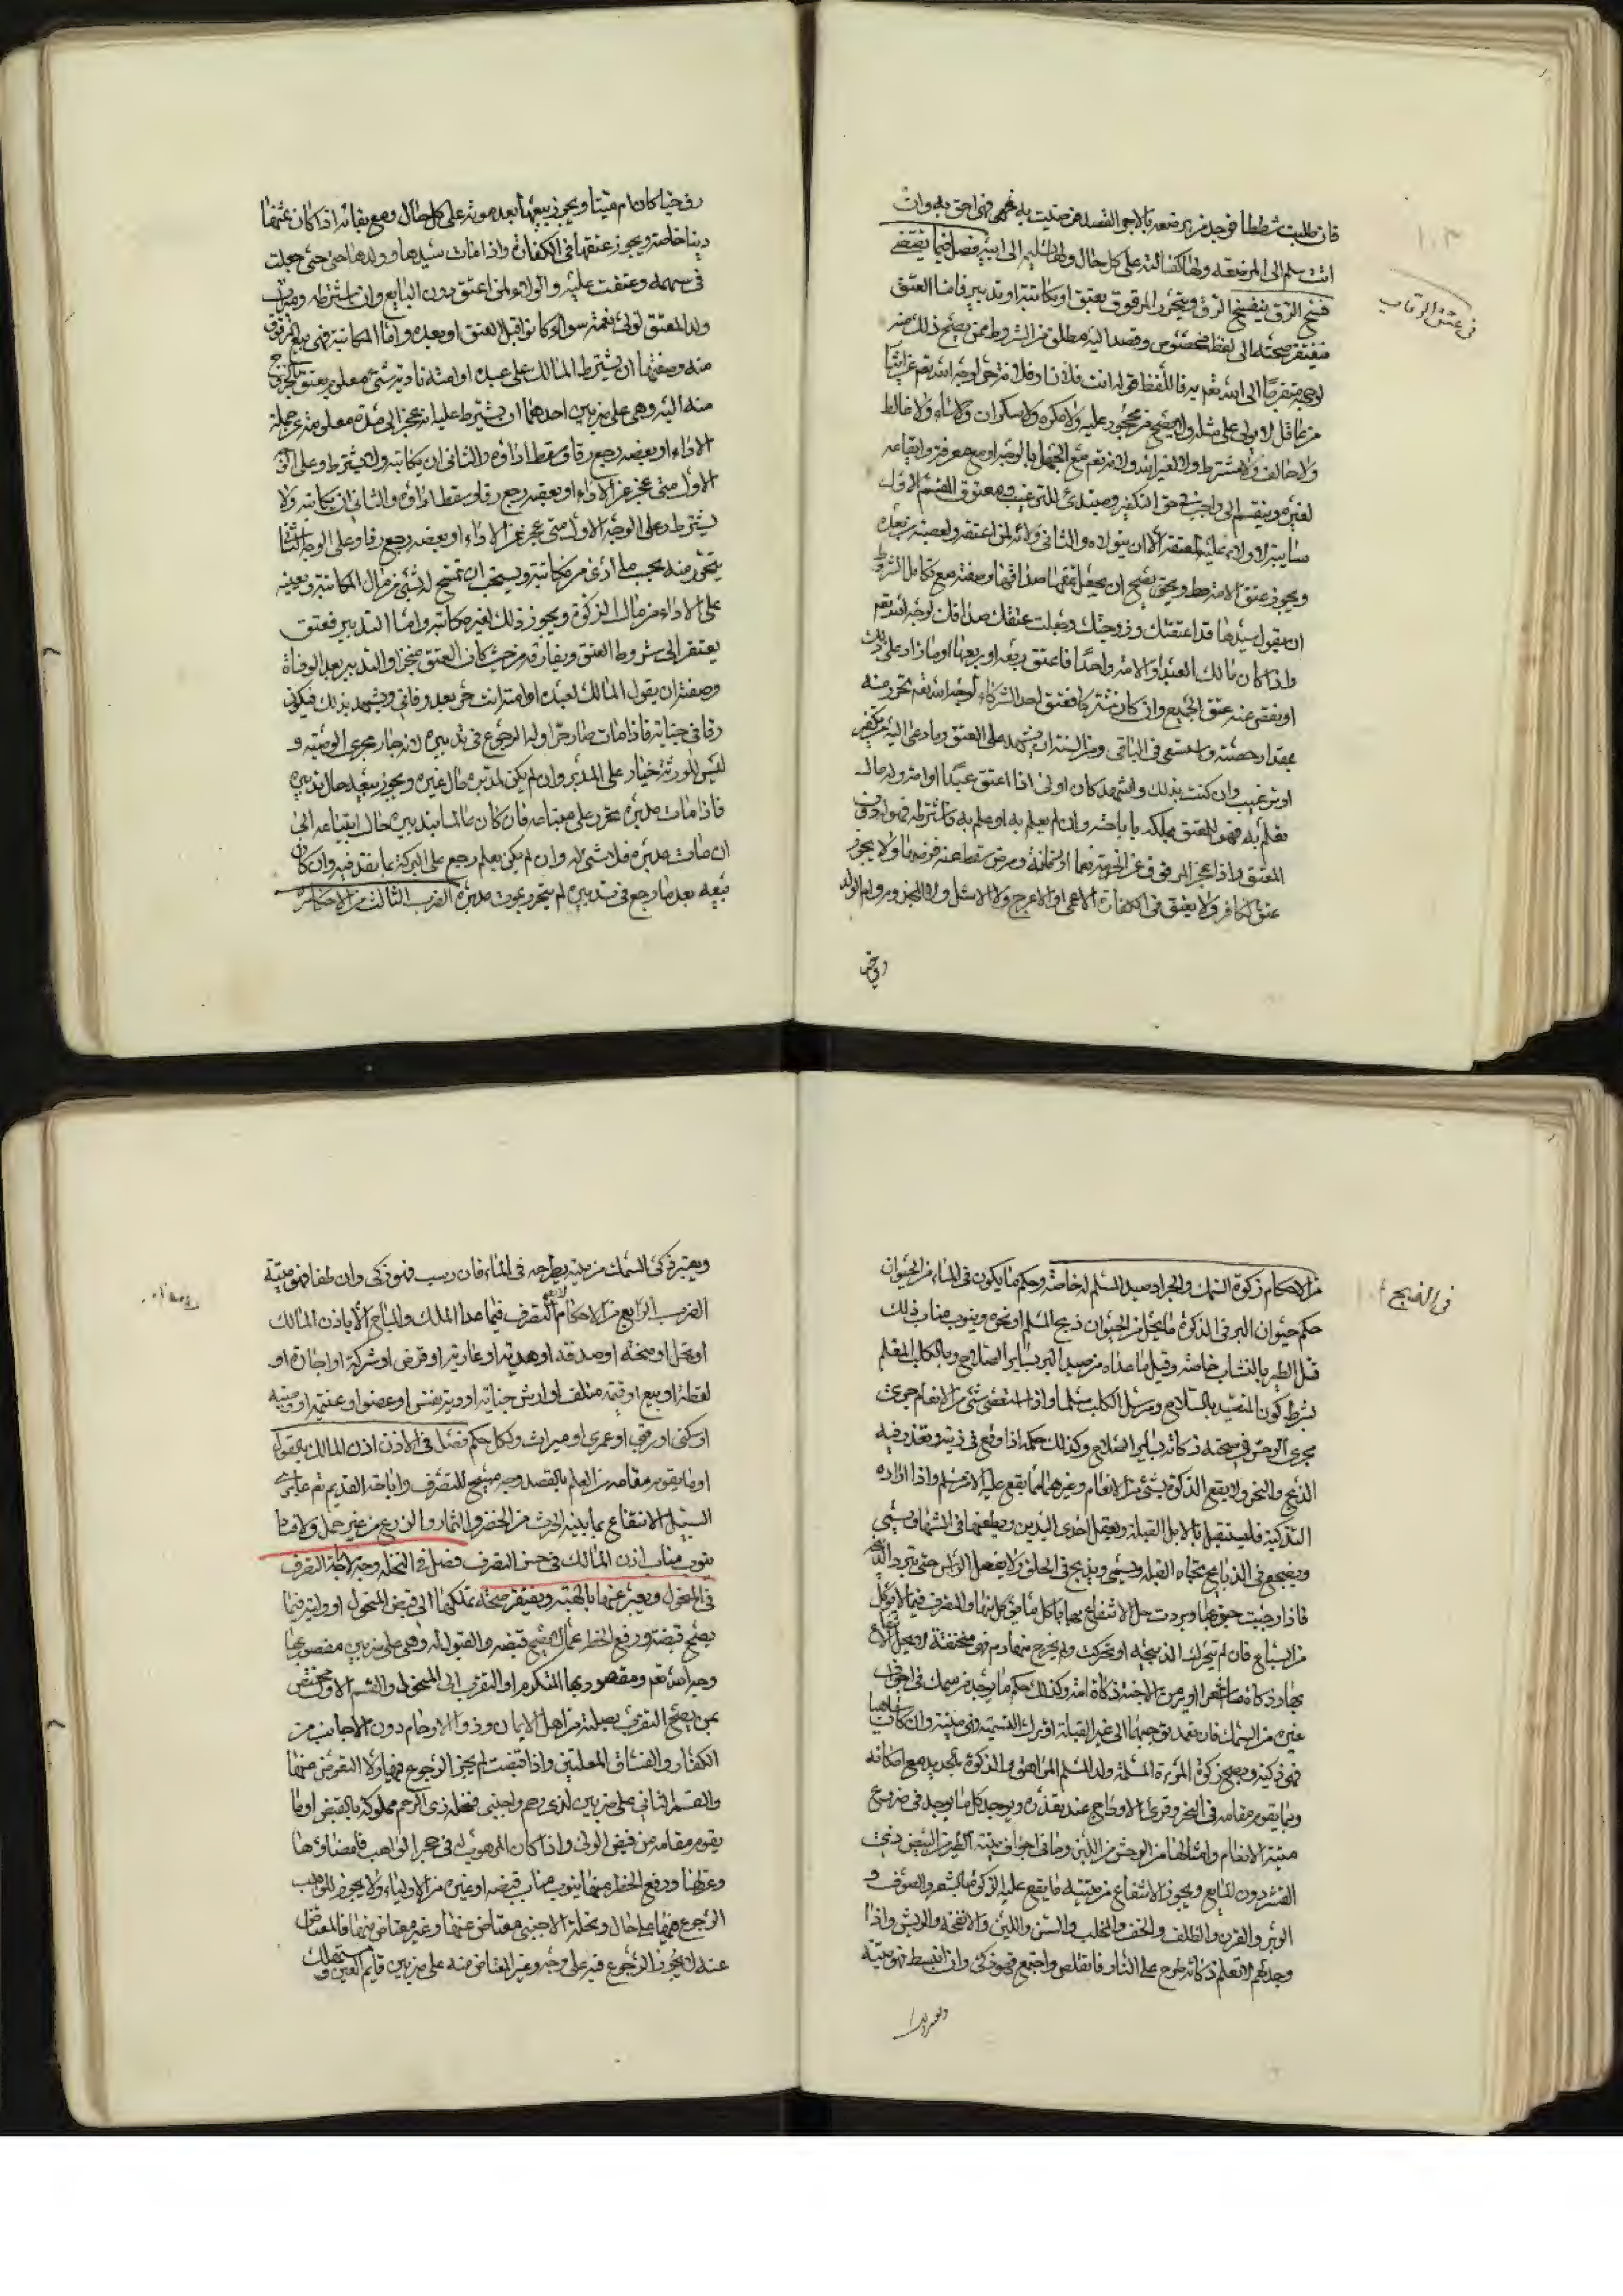 فان طلبت شططا فوجد من يرضعه بالاجر القصد فرضيت به فهي احق به وان
ابت سلم الى المرضعة ولها كفالته على كل حال ولها تسليمه الى ابيه فصل فيما يقتضي
فسخ الرق ينفسخ الرق ويتحرر المرقوق بعتق او مكاتبة او تدبير فاما العتق
فيفتقر صحته الى لفظ مخصوص وقصد اليه مطلق من الشروط ممن يصح ذلك منه
لوجه متقربا الى الله تعالى به فاللفظ قوله انت فلان او فلانة حر لوجه الله تعم
من عاقل لا مولى على مثله ولا يصح من محجور عليه ولا مكره ولا سكران ولا ساه ولا غالط
ولا حالف ولا مشترط ولا لغير الله ولا منه تعم مع الجهل بالوجه او مع معرفته وايقاعه
لغيره وينقسم الى واجب في حق التكفير ومبتدئ للترغيب ومعتوق القسم الاول
سايبة لا ولاء عليه لمعتقه الا ان يتولاه والثاني ولائه لمن اعتقه ولعصبته من بعده
ويجوز عتق الامة ويصح ان يجعل عتقها صداقها وصفته مع تكامل الشروط
ان يقول سيدها قد اعتقتك وتزوجتك وجعلت عتقك صداقك لوجه الله تعم
واذا كان مالك العبد او الامة واحدا فاعتق ربعه او ربعها او ما زاد على ذلك
او نقص عنه عتق الجميع وان كان مشتركا فعتق احد الشركاء لوجه الله تعم تحرر منه
بمقدار حصته واستسعى في الباقي ومن السنة ان يشهد على العتق وما دعى اليه من تكفير
او ترغيب وان كتب بذلك واشهد كان اولى اذا اعتق عبدا او امة وله مال
يعلم به فهو للمعتق يملكه باباحته وان لم يعلم به او علم به واشترطه فهو له دون
المعتق واذا عجز المرقوق عن الخدمة بعمى او زمانة ومرض سقط عنه فرضها ولا يجوز
عتق الكافر ولا يعتق في الكفارة الاعمى او الاعرج ولا الاشل ولا المجذوم وام الولد
وفي حق
في عتق الرقاب
١٠٣
رق حيا كان ام ميتا ويجوز بيعها بعد موته على كل حال ومع بقائه اذا كان ثمنها
دينا خاصة ويجوز عتقها في الكفارة واذا مات سيدها وولدها حي جعلت
في سهمه وعتقت عليه والولاء لمن اعتق دون البايع وان اشترطه وميراث
ولد المعتق لولي نعمته سواء كانوا قبل العتق او بعده واما المكاتبة فهي بيع المرقوق
منه وصفتها ان يشترط المالك على عبده او امته تادية شيء معلوم يعتق بالخروج
منه اليه وهي على ضربين احدهما ان يشترط عليه انه عجز الى مدة معلومة عن جملة
الاداء او بعضه رجع رقا وسقط اداؤه والثاني ان يكاتبه ولا يشترط وعلى الوجه
الاول متى عجز عن الاداء او بعضه رجع رقا وسقط اداؤه والثاني ان يكاتبه ولا
يشترط وعلى الوجه الاول متى عجز عن الاداء او بعضه رجع رقا وعلى الوجه الثاني
يتحرر منه بحسب ما ادى من مكاتبته ويستحب ان تسمح له بشيء من مال المكاتبة ويعينه
على الاداء من مال الزكوة ويجوز ذلك لغير مكاتبه واما التدبير فعتق
يفتقر الى شروط العتق ويفارقه من حيث كان العتق منجزا والتدبير بعد الوفاة
وصفته ان يقول المالك لعبده او امته انت حر بعد وفاتي ويشهد بذلك فيكون
رقا في حياته فاذا مات صار حرا وله الرجوع في تدبيره لانه جار مجرى الوصية و
ليس للورثة خيار على المدبر وان لم يكن لمدبره مال غيره ويجوز بيعه حال تدبيره
فاذا مات مدبره تحرر على مبتاعه فان كان عالما بتدبيره حال ابتياعه الى
ان مات مدبره فلا شيء له وان لم يكن يعلم رجع على التركة بما نقد فيه وان كان
بيعه بعد ما رجع في تدبيره لم يتحرر بموت مدبره الضرب الثالث من الاحكام
من الاحكام زكوة السمك والجراد صيد المسلم له خاصة وحكم ما يكون في الماء من الحيوان
حكم حيوان البر في الذكوة ما يحل من الحيوان ذبح المسلم او نحره وينوب مناب ذلك
قتل الطير بالنشاب خاصة وقيل ما عداه من صيد البر بساير السلاح وبالكلب المعلم
بشرط كون المتصيد بالسلاح ومرسل الكلب مسلما واذا استعصى شيء من الانعام جرى
مجرى الوحش في صحة ذكاته بساير السلاح وكذلك حكمه اذا وقع في زبية وتعذر فيه
الذبح والنحر ولا يقع الذكوة بشيء من الانعام وغيرهما مما يقع عليه الا من مسلم واذا اراد
التذكية فليستقبل بالابل القبلة ويعقل احدى اليدين ويطعنها في ويسمي
ويضجع في الذبايح تجاه القبلة ويسمي ويذبح في الحلق ولا يفصل الراس حتى تبرد الذبيحة
فاذا وجبت جنوبها وبردت حل الانتفاع بها باكل ما يؤكل منها والتصرف فيما لا يؤكل
من السباع فان لم يتحرك الذبيحة او تحركت ولم يخرج منها دم فهي مختنقة لا يحل الانتفاع
بها وذكاة ما اشعر او اوبر من الاجنة ذكاة امه وكذلك حكم ما يوجد من سمك في اجواف
غيره من السمك فان تعمد توجيهها الى غير القبلة او ترك التسمية فهي ميتة وان كان ساهيا
فهو ذكية ويصح زكوة المرءة المسلمة وولد المسلم المراهق والذكوة بحديد مع امكانه
وبما يقوم مقامه في النحر وفري الاوداج عند تعذره ويوجد كل ما يوجد في ضروع
ميتة الانعام وامثالها من الوحش من اللبن وما في اجواف ميتة الطير من البيض ذي
القشر دون المايع ويجوز الانتفاع من ميتة ما يقع عليه الذكوة بالشعر والصوف و
الوبر والقرن والظلف والخف والمخلب والسن واللبن والانفحة والريش واذا
وجد لحم لا تعلم ذكاته طرح على النار فان تقلص واجتمع فهو ذكي وان انبسط فهو ميتة
ويعتبر
في الذبيح
ويعتبر ذكي السمك من ميته بطرحه في الماء فان رسب فهو ذكي وان طفا فهو ميتة
الضرب الرابع من الاحكام التصرف فيما عدا الملك والمباح الا باذن المالك
او نحل او منحة او صدقة او هدية او عارية او قرض او شركة او اجارة او
لقطة او بيع او قيمة متلف او ارش جناية او دية نفس او عضو او غنيمة او وصية
او سكنى او رقبى او عمرى او ميراث ولكل حكم فصل في الاذن اذن المالك بالقول
او ما يقوم مقامه من العلم بالقصد وجه مبيح للتصرف واباحة القديم تعم عابري
السبيل الانتفاع بما ينبته الحرث من الخضر والثمار والزرع من غير حمل ولا فساد
ينوب مناب اذن المالك في حسن التصرف فصل في النحلة وجه لاباحة التصرف
في المنحول ويعبر عنها بالهبة ويفتقر صحة تملكها الى قبض المنحول او وليه فيما
يصح قبضه ورفع الحظر عما لا يصح قبضه والقبول له وهي على ضربين مقصود بها
وجه الله تعم ومقصود بها التكرم او التقرب الى المنحول والقسم الاول مختص
بمن يصح التقرب بصلته من اهل الايمان وذوا الارحام دون الاجانب من
الكفار والفساق المعلنين واذا قبضت لم يجز الرجوع فيها ولا التعوض عنها
والقسم الثاني على ضربين لذي رحم واجنبي فنحلة ذي الرحم مملوكة بالقبض او ما
يقوم مقامه من قبض الولي واذا كان الموهوب له في حجر الواهب فامضاؤها
وعزلها ورفع الحظر عنها ينوب مناب قبضه او غيره من الاولياء ولا يجوز للواهب
الرجوع فيها على حال ونحلة الاجنبي معتاض عنها وغير معتاض عنها فالمعتاض
عنه لا يجوز الرجوع فيه على وجه وغير المعتاض منه على ضربين قايم العين ومستهلك